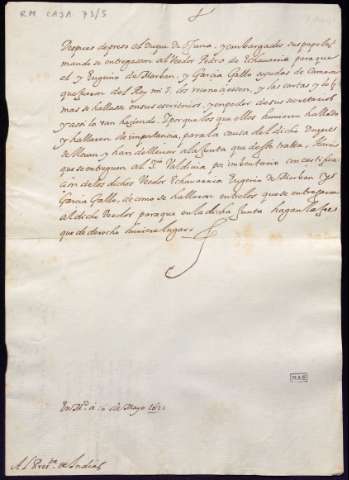 RM CAJA 73/5
Despues de preso el Duque de Osuna, y embargados sus papeles
mande se entregassen al Veedor Pedro de Echavarria para que
el y Eugenio de Marban, y Garcia Gallo ayudas de Camara
que fueron del Rey mi s.r los reconociessen, y las cartas y
mas se hallasse en sus escritorios, y en poder de sus secretarios
y esso lo van haziendo. Y porque los que ellos huvieren hallado
y hallaren de importancia, para la causa del dicho Duque
se llevan y han de llevar a la Junta que desto trata,
que se entreguen al por inventario con certifica
cion de los dichos Veedor Echavarria Eugenio de Marban, y
Garcia Gallo, de como se hallaron entre los que se entregaron
al dicho Veedor para que en la dicha Junta hagan la fee
que de derecho huviere lugar.
En M.d a 6 de Mayo 1621
Al Pres.te de Indias